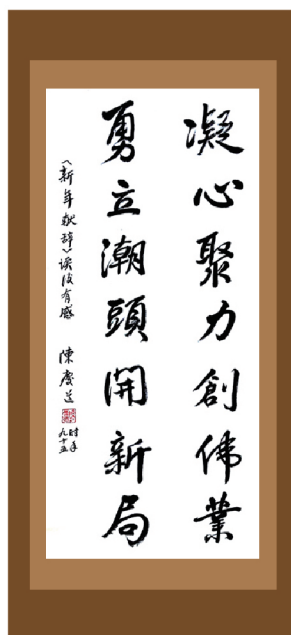 凝心聚力創偉業
勇立潮頭開新局
〈新年献辞〉读後有感 陳慶
时年
九十五